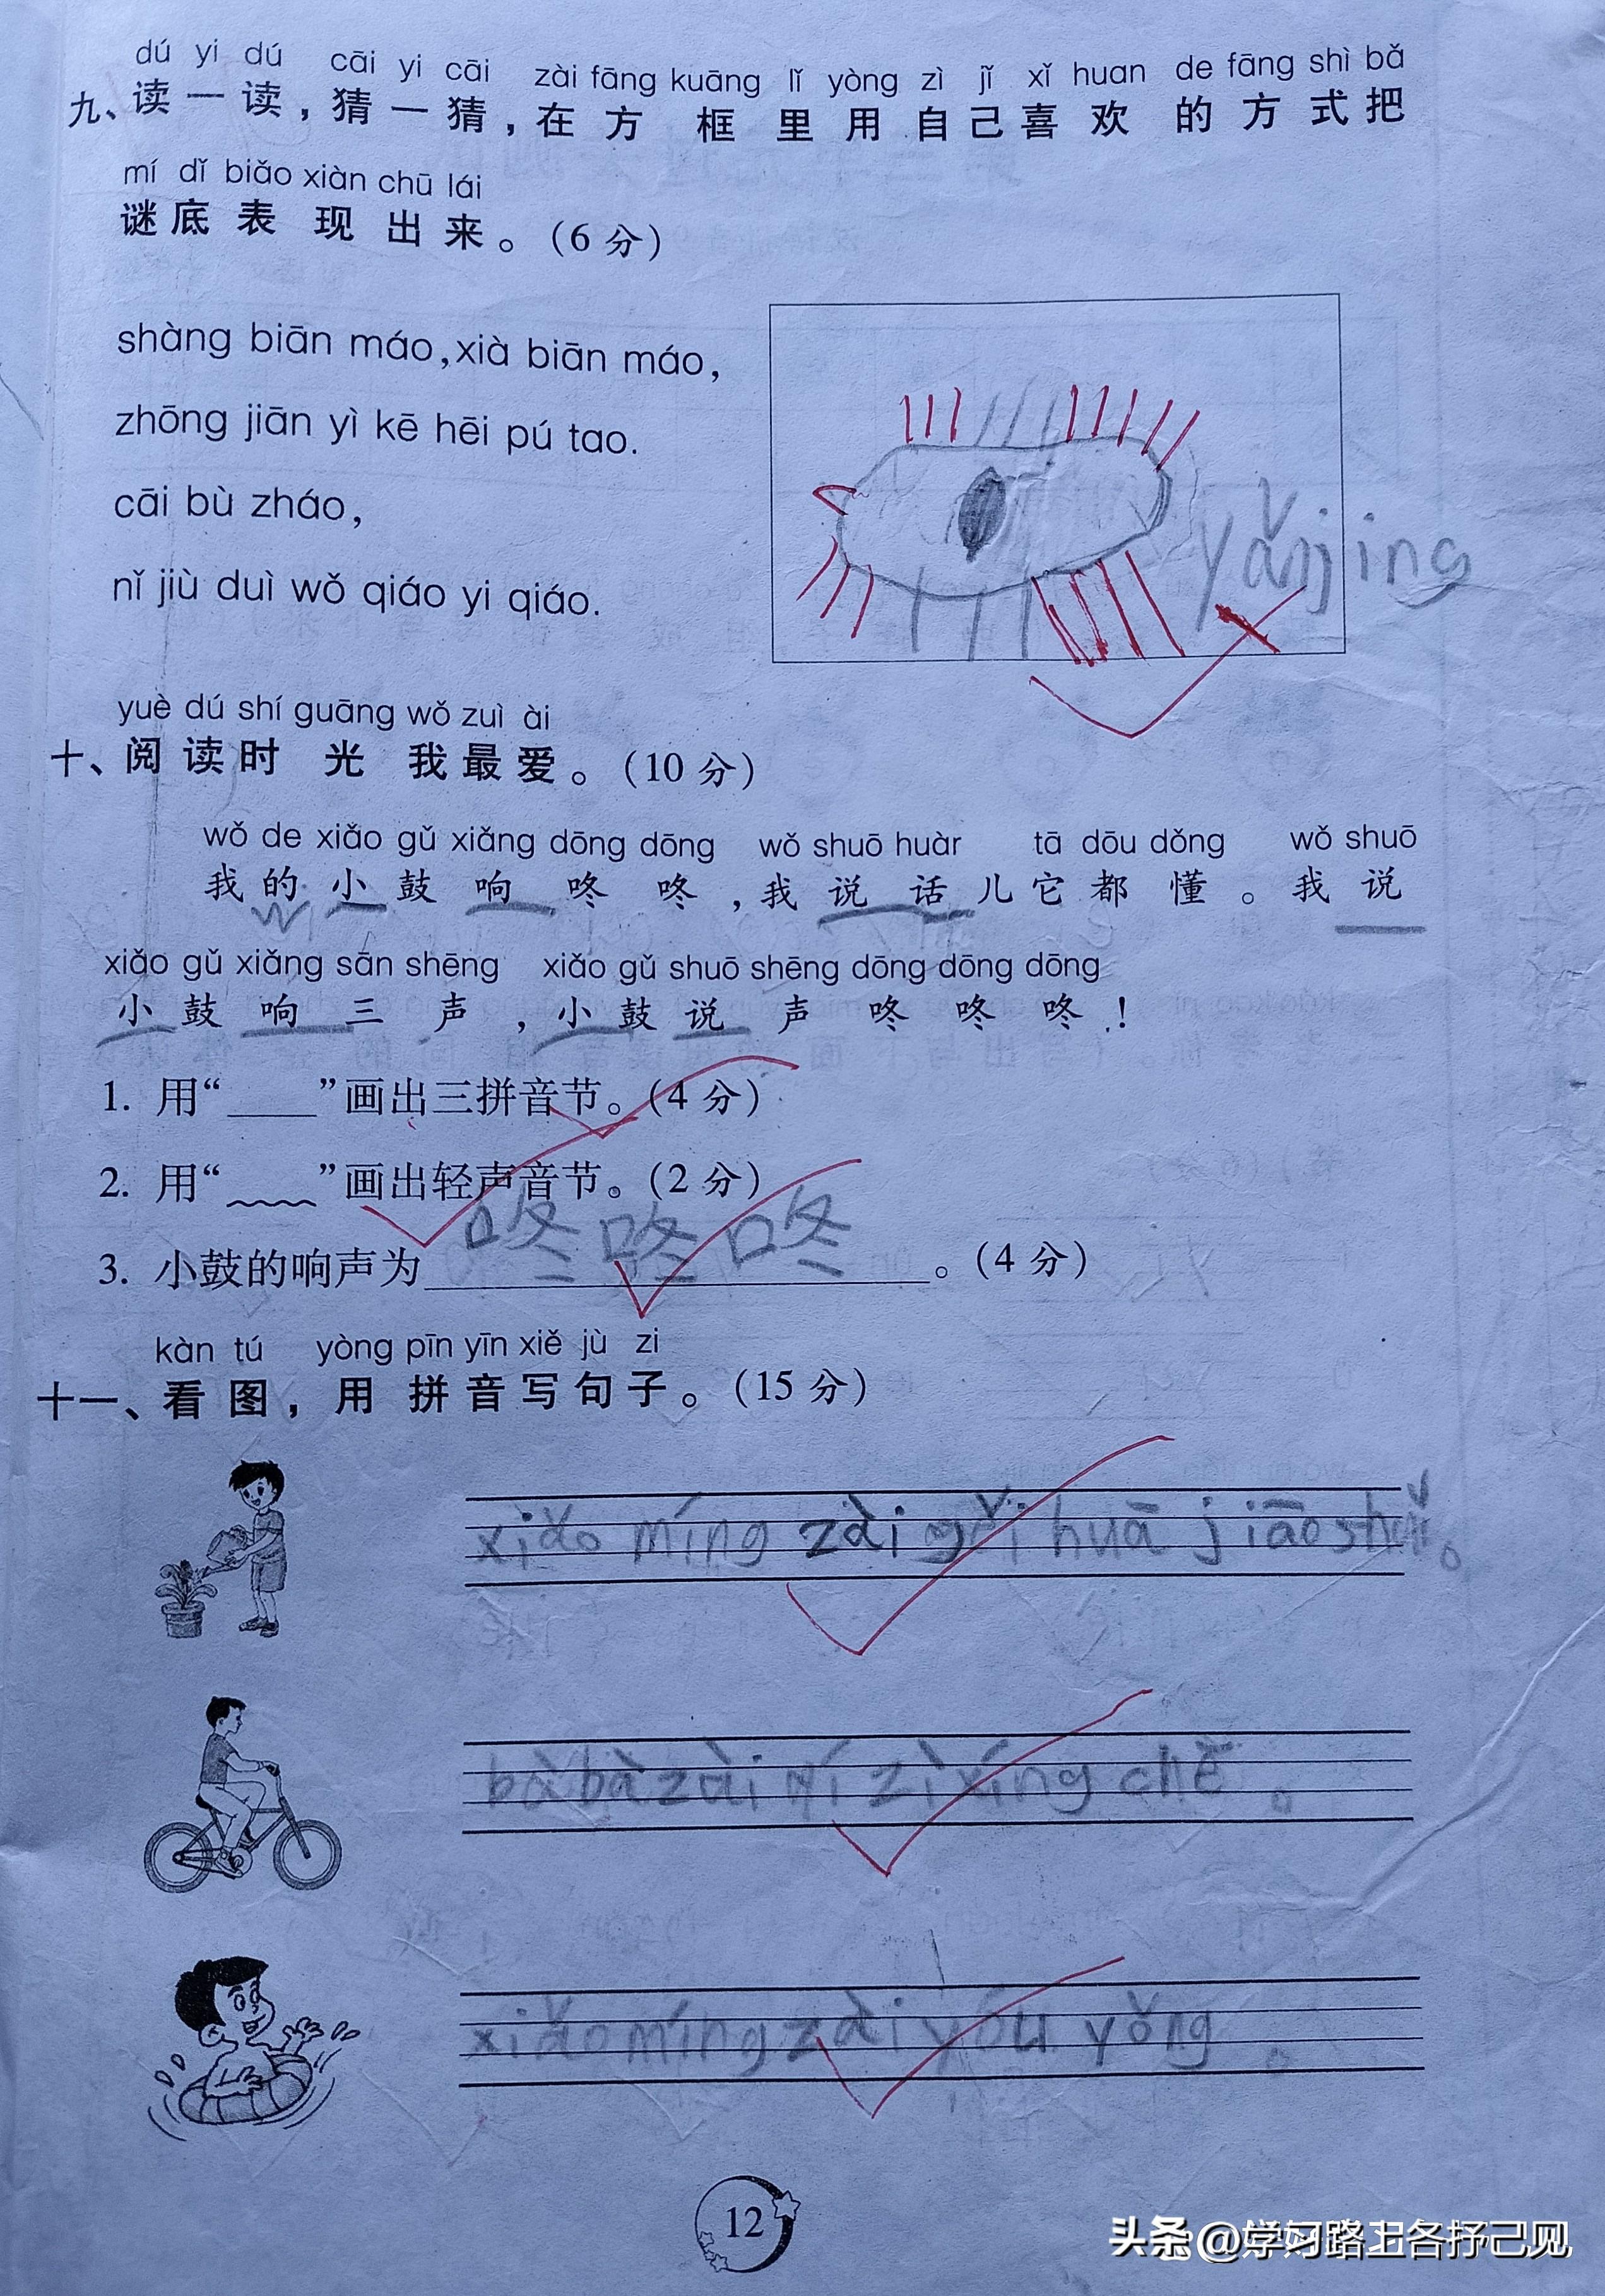 dú yi dú cāi yi cāi zài fāng kuāng lǐ yòng zì jǐ xǐ huan de fāng shì bǎ
九、读一读，猜一猜，在方框里用自己喜欢的方式把
mí dǐ biǎo xiàn chū lái
谜底表现出来。（6 分）
shàng biān máo, xià biān máo,
zhōng jiān yì kē hēi pú tao.
cāi bù zháo,
nǐ jiù duì wǒ qiáo yi qiáo.
yǎnjing
yuè dú shí guāng wǒ zuì ài
十、阅读时光我最爱。（10 分）
wǒ de xiǎo gǔ xiǎng dōng dōng wǒ shuō huàr tā dōu dǒng wǒ shuō
我的小鼓响咚咚，我说话儿它都懂。我说
xiǎo gǔ xiǎng sān shēng xiǎo gǔ shuō shēng dōng dōng dōng
小鼓响三声，小鼓说声咚咚咚！
1. 用“____”画出三拼音节。（4 分）
2. 用“﹏﹏”画出轻声音节。（2 分）
3. 小鼓的响声为咚咚咚。（4 分）
kàn tú yòng pīn yīn xiě jù zi
十一、看图，用拼音写句子。（15 分）
xiǎo míng zài gěi huā jiāo shuǐ。
bà bà zài qí zì xíng chē。
xiǎo míng zài yóu yǒng。
12
头条@学习路上各抒己见